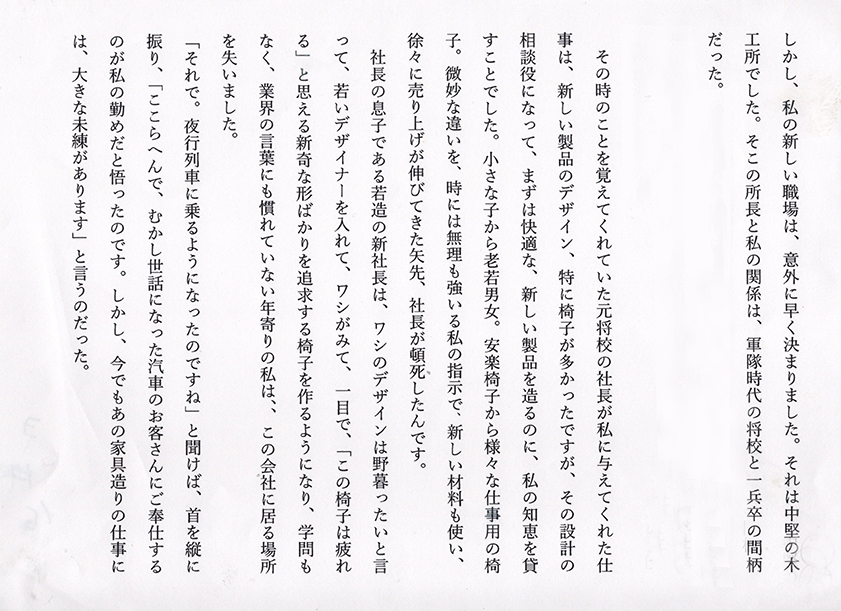 しかし、私の新しい職場は、意外に早く決まりました。それは中堅の木
工所でした。そこの所長と私の関係は、軍隊時代の将校と一兵卒の間柄
だった。
その時のことを覚えてくれていた元将校の社長が私に与えてくれた仕
事は、新しい製品のデザイン、特に椅子が多かったですが、その設計の
相談役になって、まずは快適な、新しい製品を造るのに、私の知恵を貸
すことでした。小さな子から老若男女。安楽椅子から様々な仕事用の椅
子。微妙な違いを、時には無理も強いる私の指示で、新しい材料も使い、
徐々に売り上げが伸びてきた矢先、社長が頓死したんです。
社長の息子である若造の新社長は、ワシのデザインは野暮ったいと言
って、若いデザイナーを入れて、ワシがみて、一目で、「この椅子は疲れ
る」と思える新奇な形ばかりを追求する椅子を作るようになり、学問も
なく、業界の言葉にも慣れていない年寄りの私は、、この会社に居る場所
を失いました。
「それで。夜行列車に乗るようになったのですね」と聞けば、首を縦に
振り、「ここらへんで、むかし世話になった汽車のお客さんにご奉仕する
のが私の勤めだと悟ったのです。しかし、今でもあの家具造りの仕事に
は、大きな未練があります」と言うのだった。